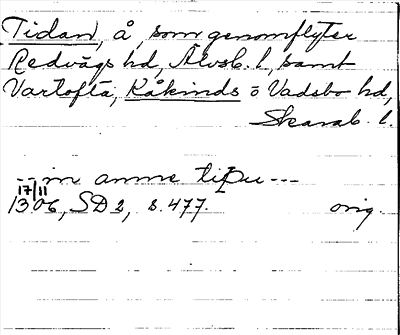 Tidan, å, som genomflyter
Redvägs hd, Älvsb. l., samt
Vartofta, Kåkinds o. Vadsbo hd,
Skarab. l.
--- in amne tiþu ---
17/11
1306, SD 2, s. 477. orig.